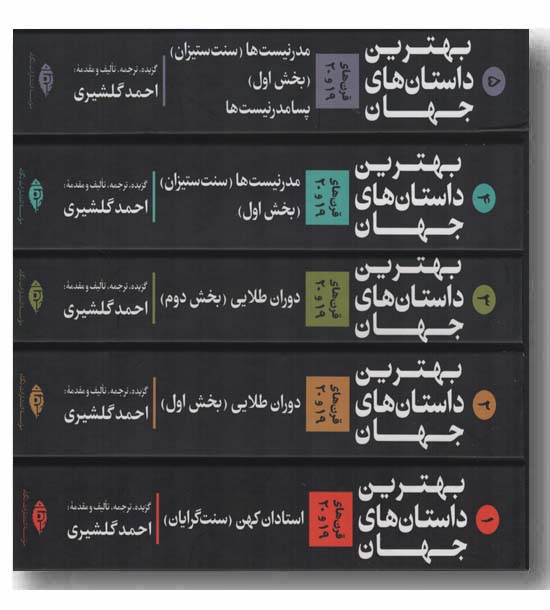 ۵
بهترین
داستان‌های
جهان
قرن‌های
۱۹ و ۲۰
مدرنیست‌ها (سنت‌ستیزان)
(بخش اول)
پسامدرنیست‌ها
گزیده، ترجمه، تألیف و مقدمه:
احمد گلشیری
مؤسسه انتشارات نگاه
۴
بهترین
داستان‌های
جهان
قرن‌های
۱۹ و ۲۰
مدرنیست‌ها (سنت‌ستیزان)
(بخش اول)
گزیده، ترجمه، تألیف و مقدمه:
احمد گلشیری
مؤسسه انتشارات نگاه
۳
بهترین
داستان‌های
جهان
قرن‌های
۱۹ و ۲۰
دوران طلایی (بخش دوم)
گزیده، ترجمه، تألیف و مقدمه:
احمد گلشیری
مؤسسه انتشارات نگاه
۲
بهترین
داستان‌های
جهان
قرن‌های
۱۹ و ۲۰
دوران طلایی (بخش اول)
گزیده، ترجمه، تألیف و مقدمه:
احمد گلشیری
مؤسسه انتشارات نگاه
۱
بهترین
داستان‌های
جهان
قرن‌های
۱۹ و ۲۰
استادان کهن (سنت‌گرایان)
گزیده، ترجمه، تألیف و مقدمه:
احمد گلشیری
مؤسسه انتشارات نگاه